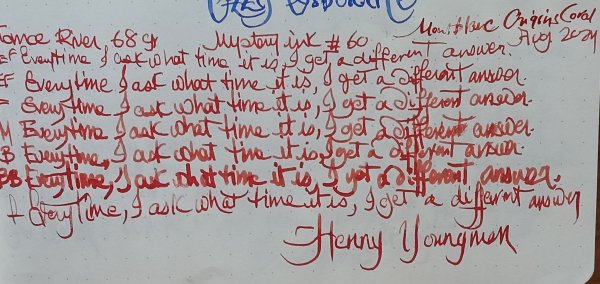 Tomoe River, 68 gr Mystery ink #60 Montblanc Origins Coral
Aug 2024
EF Everytime I ask what time it is, I get a different answer.
EF Everytime I ask what time it is, I get a different answer.
F Everytime I ask what time it is, I get a different answer.
M Everytime I ask what time it is, I get a different answer.
B Everytime, I ask what time it is, I get a different answer.
BB Everytime, I ask what time it is, I get a different answer.
Everytime, I ask what time it is, I get a different answer
-Henny Youngman